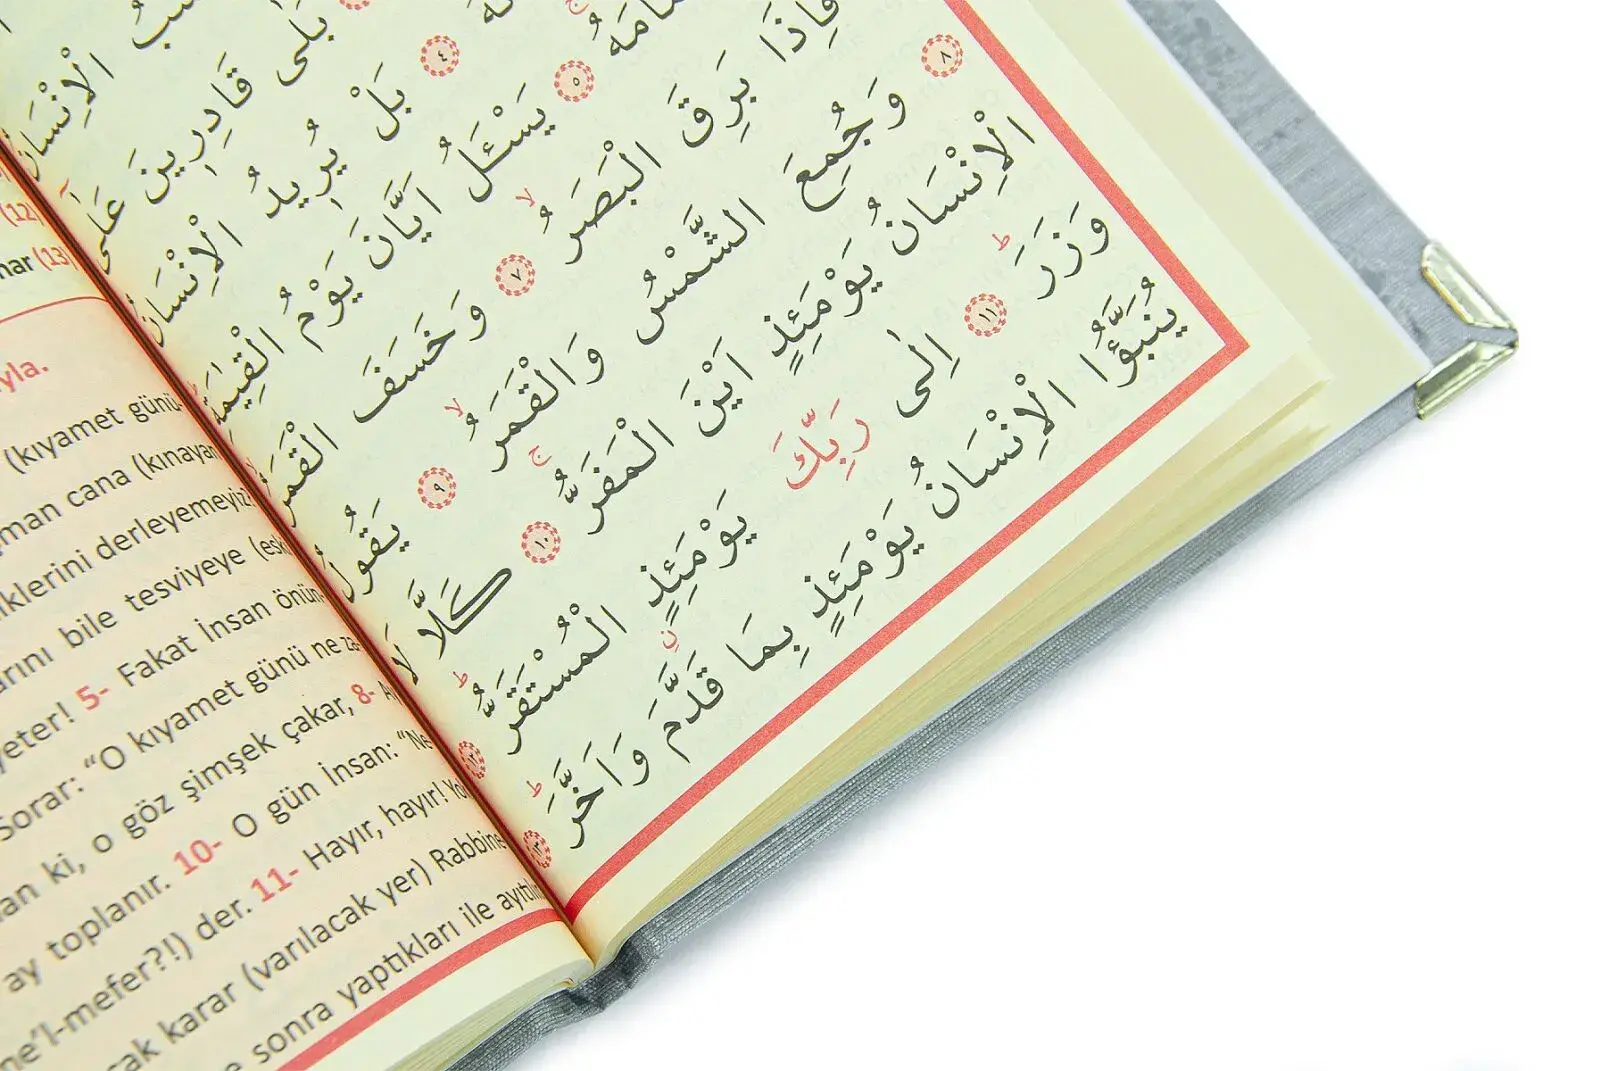 الْاِنْسَانُ
بَلٰى قَادِرِينَ عَلٰٓى
٤ بَلْ يُرِيدُ الْاِنْسَانُ
٥ يَسْـَٔلُ اَيَّانَ يَوْمُ الْقِيٰمَةِ
فَاِذَا بَرِقَ الْبَصَرُ ٧ وَخَسَفَ الْقَمَرُ
٨ وَجُمِعَ الشَّمْسُ وَالْقَمَرُ ٩ يَقُولُ
الْاِنْسَانُ يَوْمَئِذٍ اَيْنَ الْمَفَرُّ ١٠ كَلَّا لَا
وَزَرَ ١١ اِلٰى رَبِّكَ يَوْمَئِذٍ الْمُسْتَقَرُّ ١٢
يُنَبَّؤُا الْاِنْسَانُ يَوْمَئِذٍ بِمَا قَدَّمَ وَاَخَّرَ ١٣
(12)
nar (13)
yla.
(kıyamet günü-
man cana (kınayan
iklerini derleyemeyiz
arını bile tesviyeye (esk
yeter! 5- Fakat İnsan önün
Sorar: “O kıyamet günü ne za
an ki, o göz şimşek çakar, 8- A
ay toplanır. 10- O gün İnsan: “Ne
ne’l-mefer?!) der. 11- Hayır, hayır! Yo
cak karar (varılacak yer) Rabbine
e sonra yaptıkları ile ayıtılı